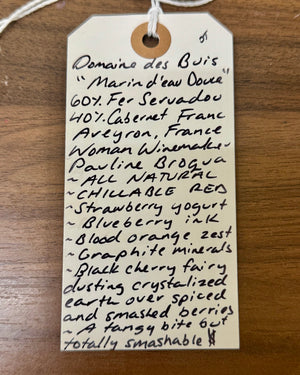 Domaine des Buis
"Marin d'eau Douce"
60% Fer Servadou
40% Cabernet Franc
Aveyron, France
Woman Winemaker
Pauline Broqua
~ ALL NATURAL
~ CHILLABLE RED
~ Strawberry yogurt
~ Blueberry ink
~ Blood orange zest
~ Graphite minerals
~ Black cherry fairy
dusting crystalized
earth over spiced
and smashed berries
~ A tangy bite but
totally smashable